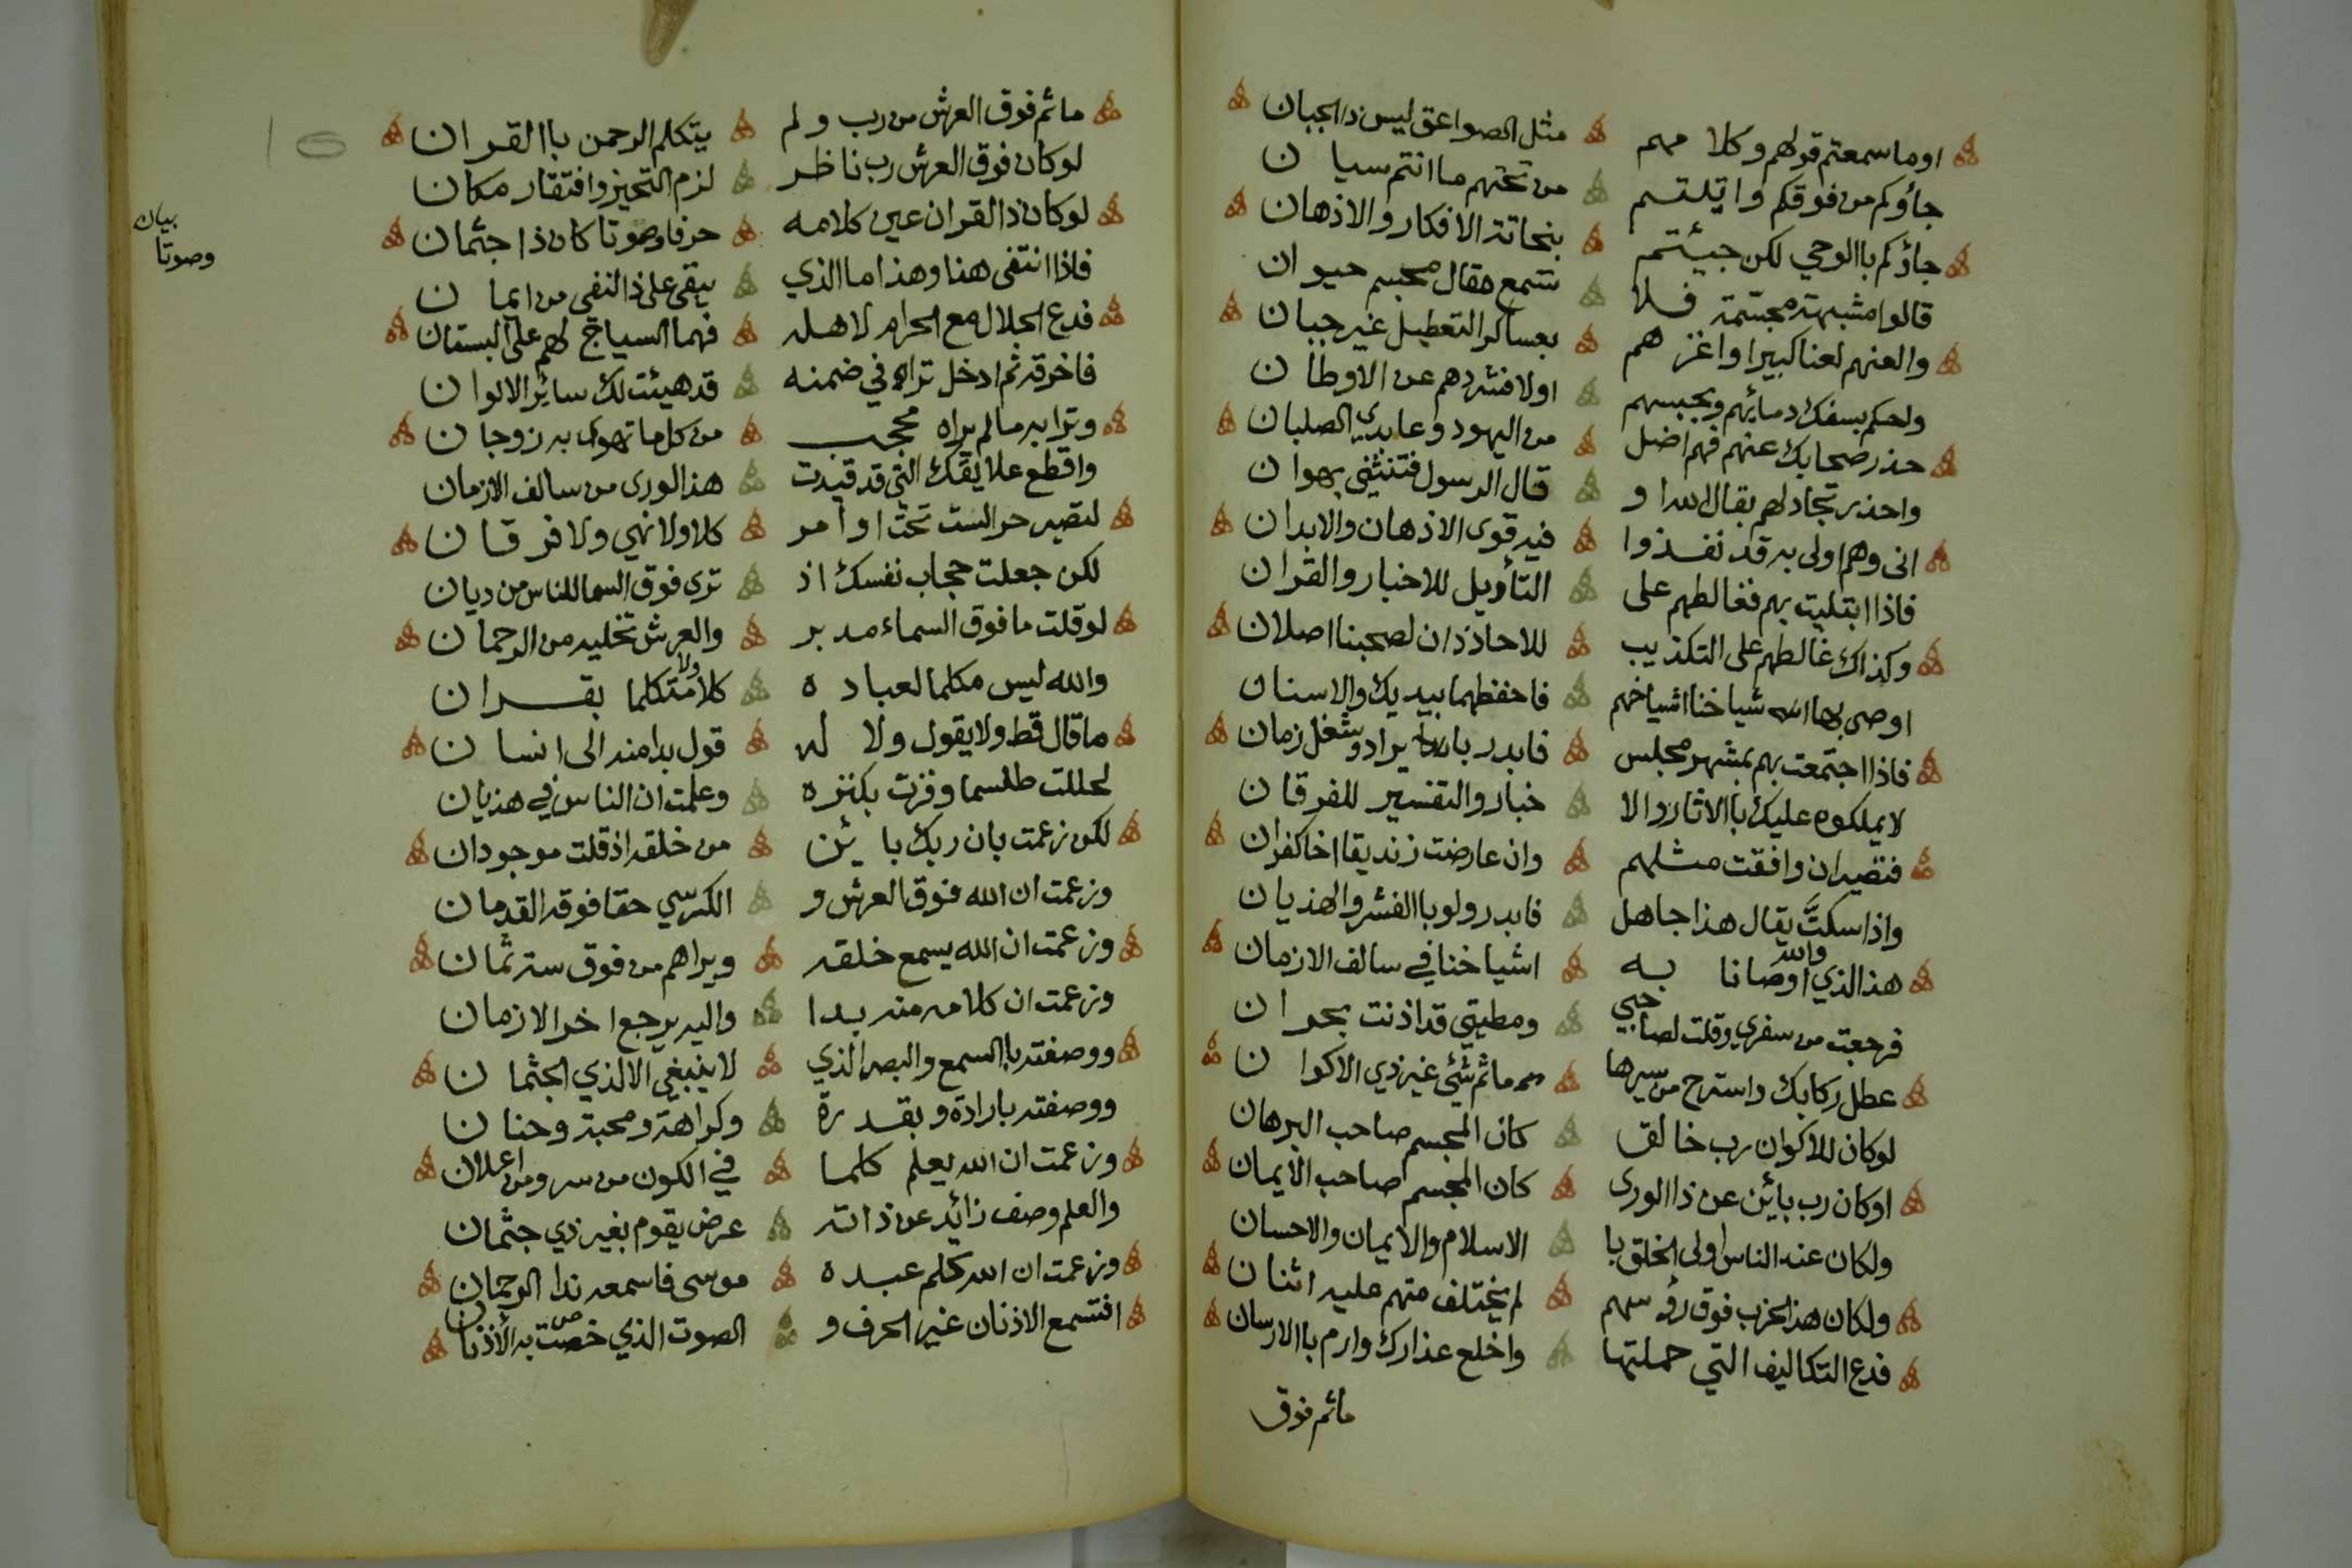 اوما سمعتم قولهم وكلا مهم مثل الصواعق ليس ذا لجبان
جاؤكم من فوقكم واتيتم من تحتهم ما انتم سيان
جاؤكم باالوحي لكن جيئتم بنحاتة الافكار والاذهان
قالوا مشبهة مجسمة فلا تسمع مقال مجسم حيوان
والعنهم لعنا كبيرا واغزهم بعساكر التعطيل غير جبان
واحكم بسفك دمائهم وبحبسهم اولا فشردهم عن الاوطان
حذر صحابك عنهم فهم اضل من اليهود وعابدي الصلبان
واحذر تجادلهم بقال الله او قال الرسول فتنثني بهوان
انى وهم اولى به قد نفذوا فيه قوى الاذهان والابدان
فاذا ابتليت بهم فغالطهم على التأويل للاخبار والقران
وكذاك غالطهم على التكذيب للاحاد ذان لصحبنا اصلان
اوصى بها اشياخنا اشياخهم فاحفظهما بيديك والاسنان
فاذا اجتمعت بهم بمشهد مجلس فابدر بايراد وشغل زمان
لا يملكوه عليك باالاثار والا خبار والتفسير للفرقان
فتصير ان وافقت مثلهم وان عارضت زنديقا اخا كفران
واذا سكتَّ يقال هذا جاهل فابدر ولو باالفشر والهذيان
هذا الذي والله اوصانا به اشياخنا في سالف الازمان
فرجعت من سفري وقلت لصاحبي ومطيتي قد اذنت بحران
عطل ركابك واسترح من سيرها ما ثم شئ غير ذي الاكوان
لوكان للاكوان رب خالق كان المجسم صاحب البرهان
اوكان رب بائن عن ذا الورى كان المجسم صاحب الايمان
ولكان عند الناس اولى الخلق با الاسلام والايمان والاحسان
ولكان هذا الحزب فوق رؤسهم لم يختلف منهم عليه اثنان
فدع التكاليف التي حملتها واخلع عذارك وارم باالارسان
ماثم فوق
ماثم فوق العرش من رب ولم يتكلم الرحمن باالقران
لوكان فوق العرش رب ناظر لزم التحيز وافتقار مكان
لوكان ذا القران عين كلامه حرفا وصوتا كان ذا جثمان
بيان
وصوتا
فاذا انتفى هذا وهذا ما الذي يبقى على ذا النفي من ايمان
فدع الحلال مع الحرام لاهله فهما السياج لهم على البستان
فاخرقه ثم ادخل تراه في ضمنه قد هيئت لك سائر الالوان
وترا به ما لم يراه محجب من كل ما تهوى به زوجان
واقطع علايقك التي قد قيدت هذا الورى من سالف الازمان
لتصير حرا لست تحت اوامر كلا ولا نهي ولا فرقان
لكن جعلت حجاب نفسك اذ ترى فوق السما للناس من ديان
لو قلت ما فوق السماء مدبر والعرش تخليه من الرحمان
والله ليس مكلما لعباده كلا ولا متكلما بقران
ما قال قط ولا يقول ولا له قول بدا منه الى انسان
لحللت طلسما وفزت بكنزه وعلمت ان الناس في هذيان
لكن زعمت بان ربك بائن من خلقه اذ قلت موجودان
وزعمت ان الله فوق العرش و الكرسي حقا فوقه القدمان
وزعمت ان الله يسمع خلقه ويراهم من فوق ست ثمان
وزعمت ان كلامه منه بدا واليه يرجع اخر الازمان
ووصفته باالسمع والبصر الذي لا ينبغي الا لذي الجثمان
ووصفته بارادة وبقدرة وكراهة ومحبة وحنان
وزعمت ان الله يعلم كلما في الكون من سر ومن اعلان
والعلم وصف زائد عن ذاته عرض يقوم بغير ذي جثمان
وزعمت ان الله كلم عبده موسى فاسمعه ندا الرحمان
افتسمع الاذنان غير الحرف و الصوت الذي خصت به الاذنان